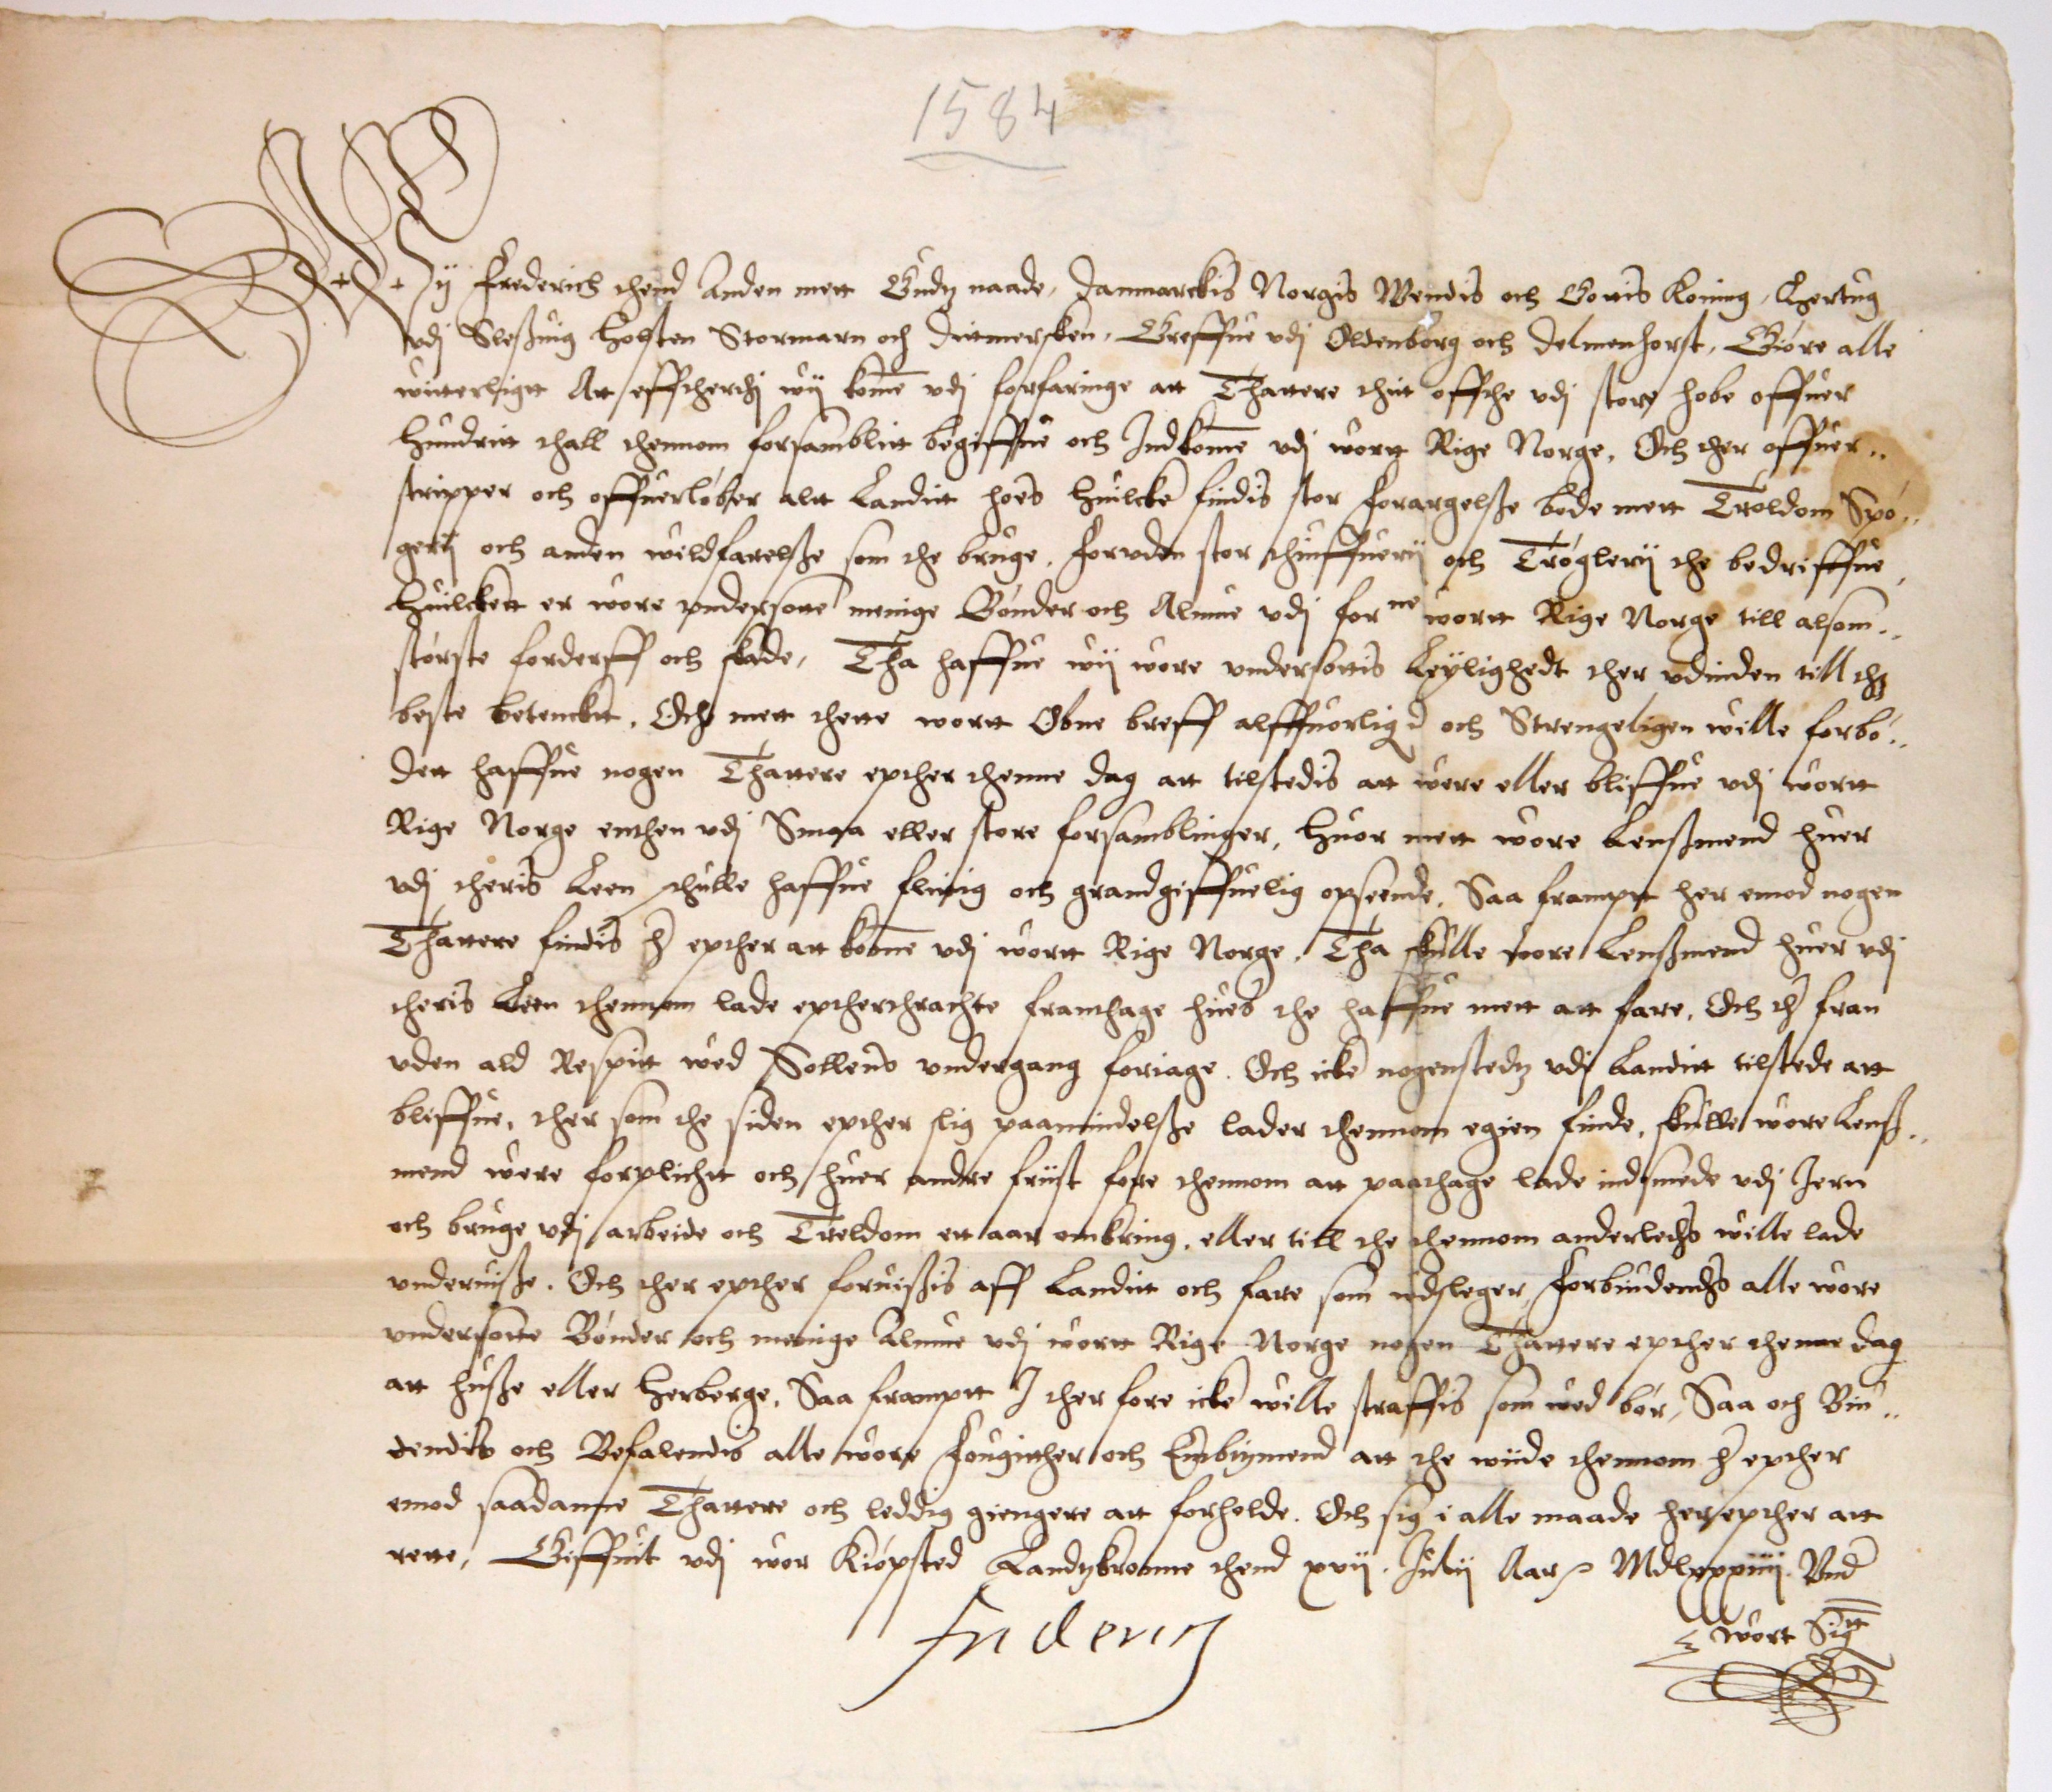 1584
Wij Frederich thend Anden mett Gudz naade, Danmarckis Norgis Wendis och Gottis Koning, Hertug
vdj Sleßuig Holsten Stormarn och Dittmersken, Greffue vdj Oldenborg och Delmenhorst, Giøre alle
witterligtt Att effttherthj wij komme vdj forfaringe att Thattere thitt offthe vdj store hobe offuer
Hundritt thall thennom forsamblitt begiffue och Indkomme vdj wortt Rige Norge, Och ther offuer..
stripper och offuerløber altt Landitt hoes huilcke findis stor forargelße bode mett Troldom Spø..
gerj och anden wildfarelße som the bruge, foruden stor thiuffuerij och Trøglerij the bedriffue,
Huilckett er wore vndersotte menige Bønder och Almue vdj for ne wortt Rige Norge till alsom..
største forderff och skade, Tha haffue wij wore vndersottis Leylighedt ther vdinden till thz
beste betenckt, Och mett thette wortt Obne breff alffuorligd och Strengeligen wille forbø..
dett haffue nogen Thattere epther thenne dag att tilstedis att were eller bliffue vdj wortt
Rige Norge enthen vdj Smaa eller store forsamblinger, Huor mett wore Lenßmend huer
vdj theris Leen skulle haffue flittig och grandgiffuelig opseende, Saa frampt her emod nogen
Thattere findis h epther att komme vdj wortt Rige Norge, Tha skulle wore Lenßmend huer vdj
theris Leen thennom lade eptherthrachte framthage hues the haffue mett att fare, Och th fran
vden ald Respitt wed Sollens vndergang foriage. Och icke nogenstedz vdj Landitt tilstede att
bliffue, ther som the siden epther slig paamindelße lader thennom egien finde, skulle wore Lenß..
mend were forplicht och huer andre friist fore thennom att paathage lade indsmede vdj Jern
och bruge vdj arbeide och Treldom ett aar omkring, eller till the thennom anderledis wille lade
vnderuiße. Och ther epther foruißis aff Landitt och fare som wdsleger, Forbiudendis alle wore
vndersotte Bønder och menige Almue vdj wortt Rige Norge nogen Thattere epther thenne dag
att huße eller Herberge, Saa frampt I ther fore icke wille straffis som wed bør, Saa och Biu..
dendis och Befalendis alle wore Fougither och Embitzmend att the wiide thennom h epther
emod saadanne Thattere och leddig giengere att forholde. Och sig i alle maade her epther att
rette, Giffuit vdj wor Kiøpsted Landzkronne thend xvij. Julij Aar MDlxxxiiij Vnd
wort Sigtt
Friderich